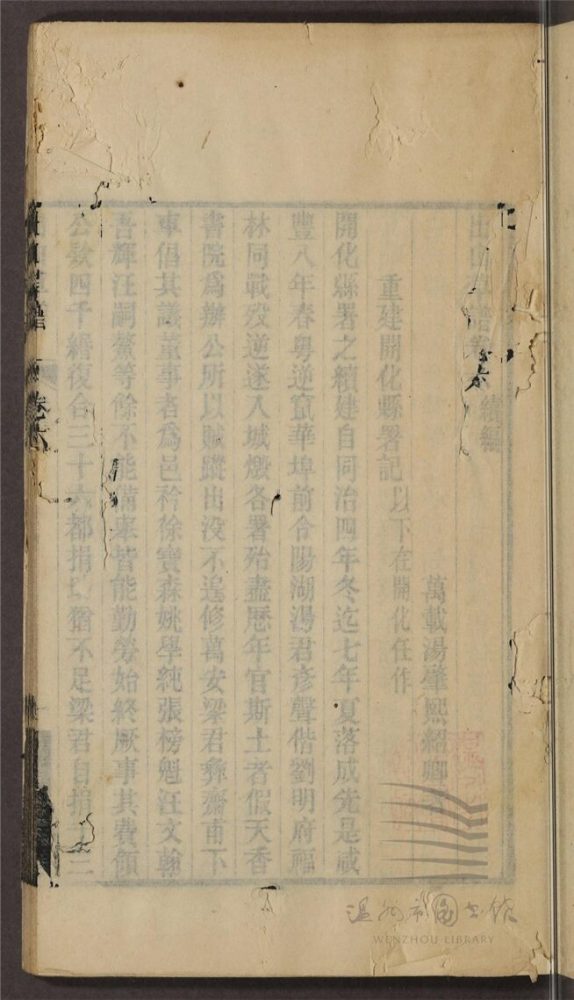 出山草譜卷六 續編
萬載湯肇熙紹卿
重建開化縣署記 以下在開化任作
開化縣署之續建自同治四年冬迄七年夏落成先是咸
豐八年春粵逆竄華埠前令陽湖湯君彥聲偕劉明府福
林同戰歿逆遂入城燬各署殆盡歷年官斯土者假天香
書院為辦公所以賊蹤出沒不遑修萬安梁君彝齋甫下
車倡其議董事者為邑矜徐寶森姚學純張榜魁汪文翰
吾輝汪嗣鰲等餘不能備舉皆能勤勞始終厥事其費領
公欵四千緡復合三十六都捐 猶不足梁君自捐 二
卷六
温州市图书馆
WENZHOU LIBRARY